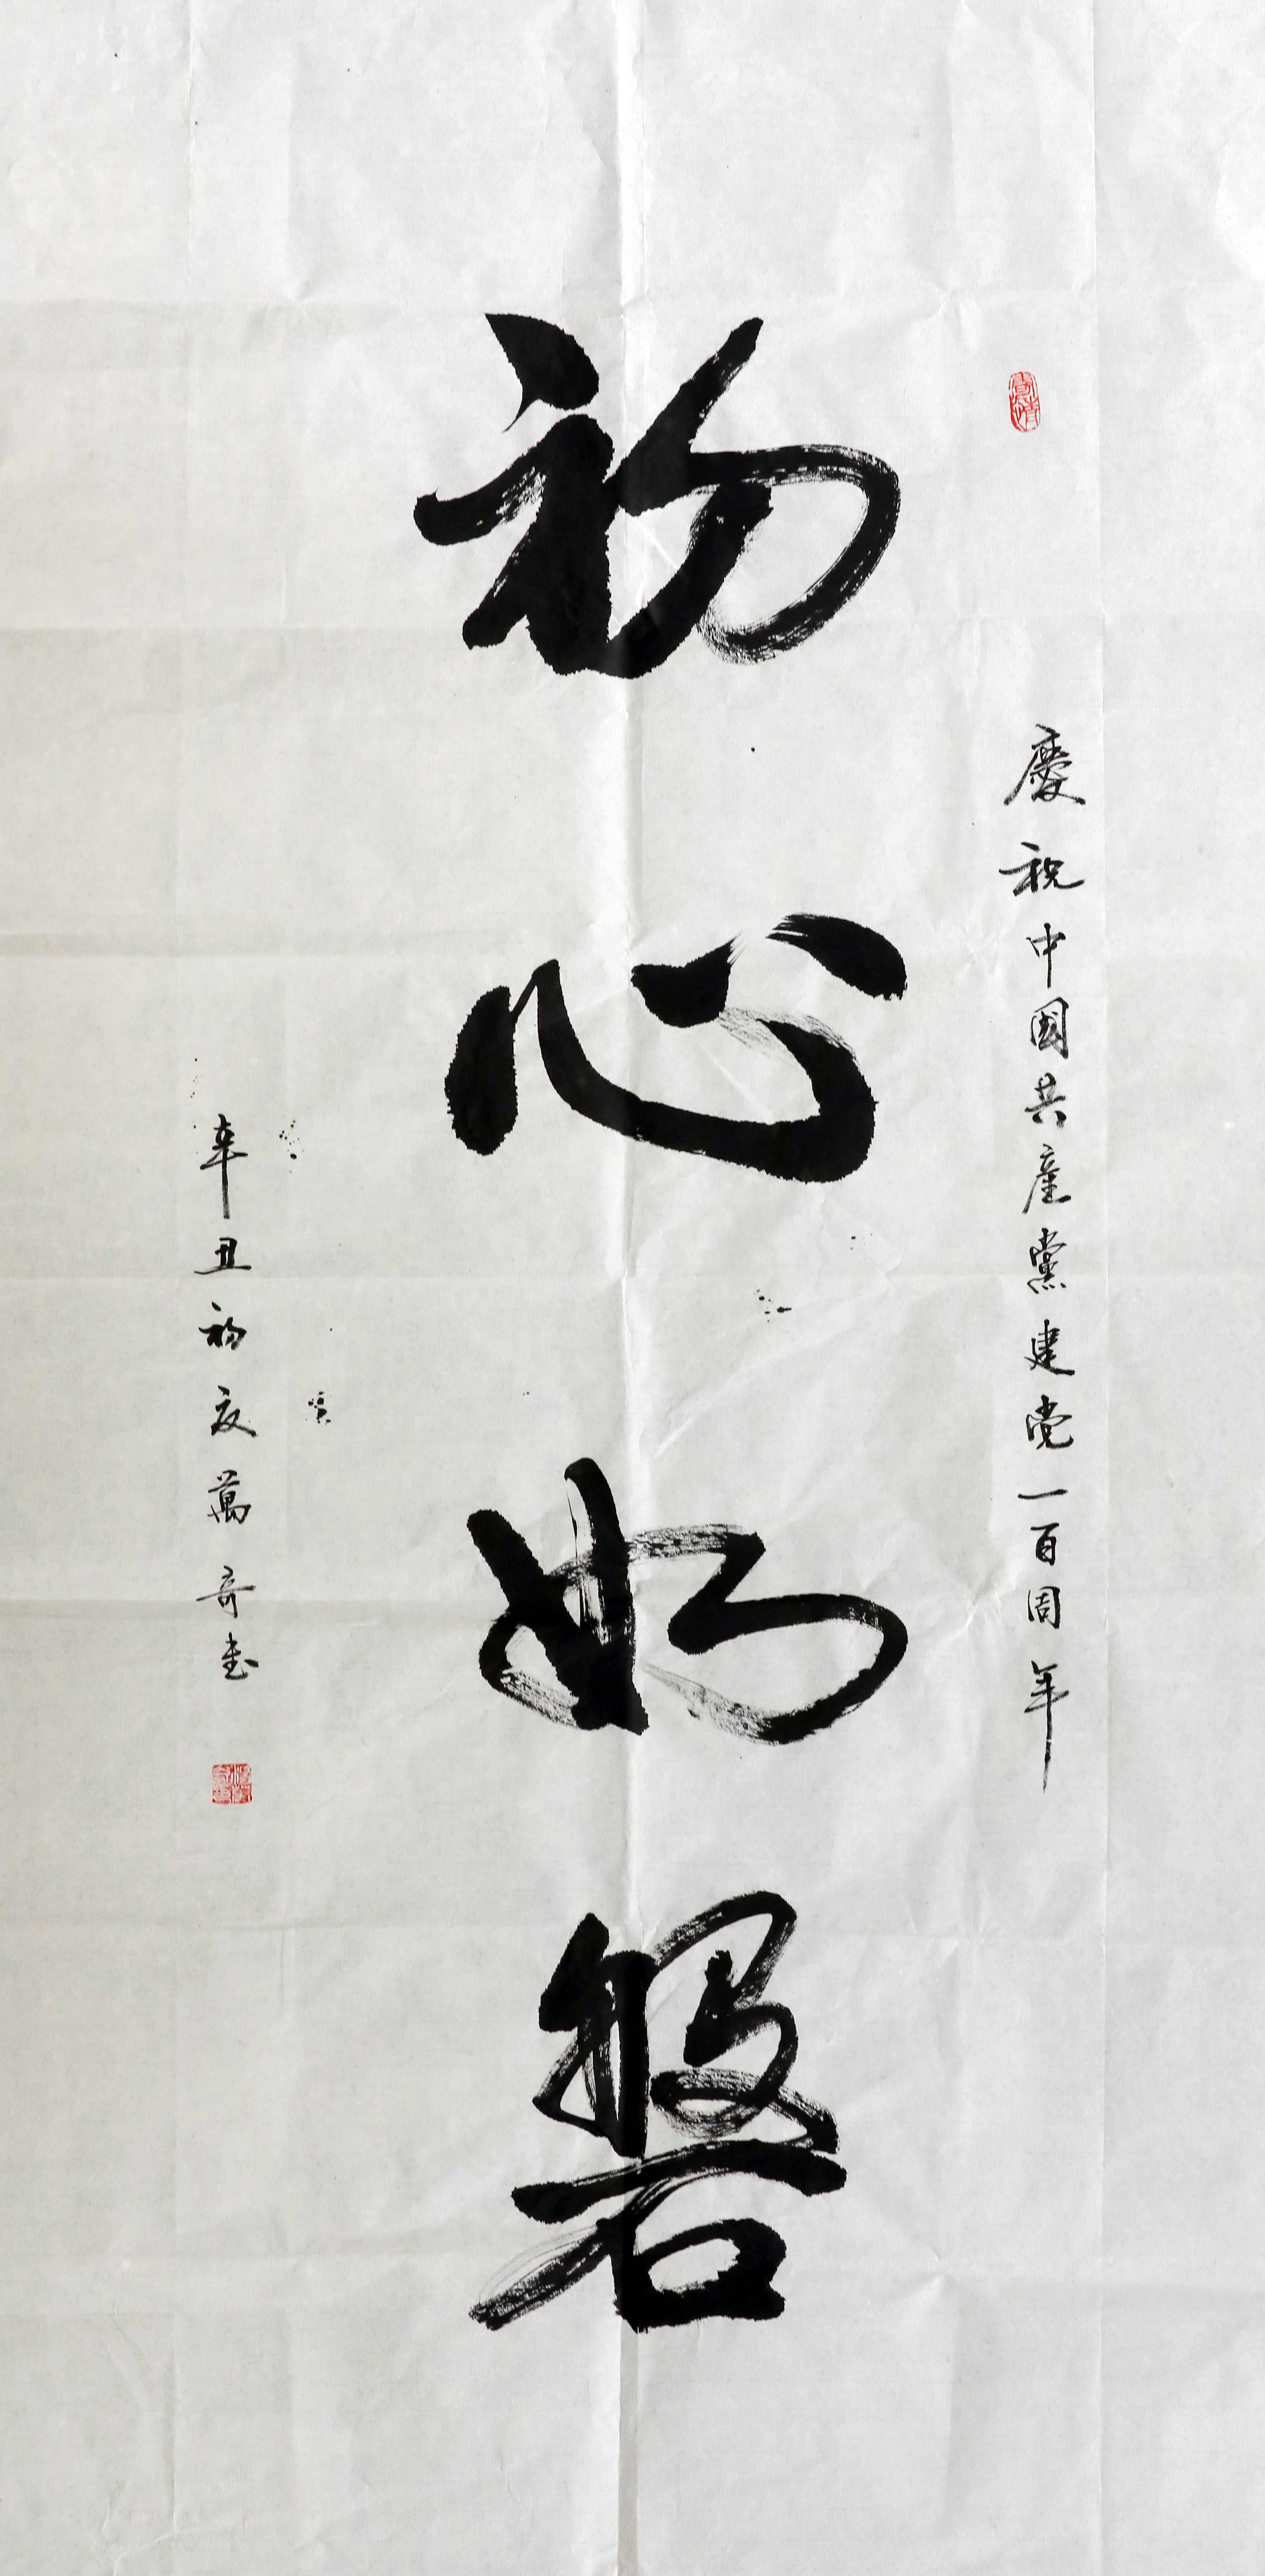 慶祝中國共産黨建党一百周年
初心如磐
辛丑初夏萬奇书